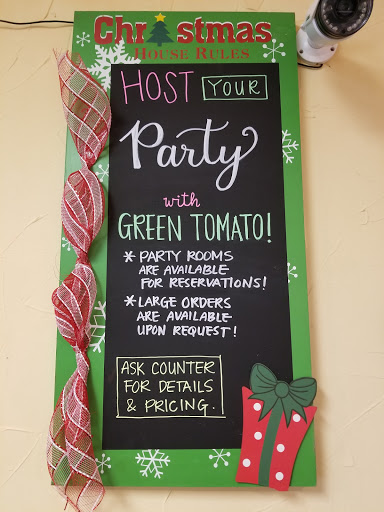 Christmas
HOUSE RULES
HOST YOUR
Party
with
GREEN TOMATO!
* PARTY ROOMS
ARE AVAILABLE
FOR RESERVATIONS!
* LARGE ORDERS
ARE AVAILABLE
UPON REQUEST!
ASK COUNTER
FOR DETAILS
& PRICING.